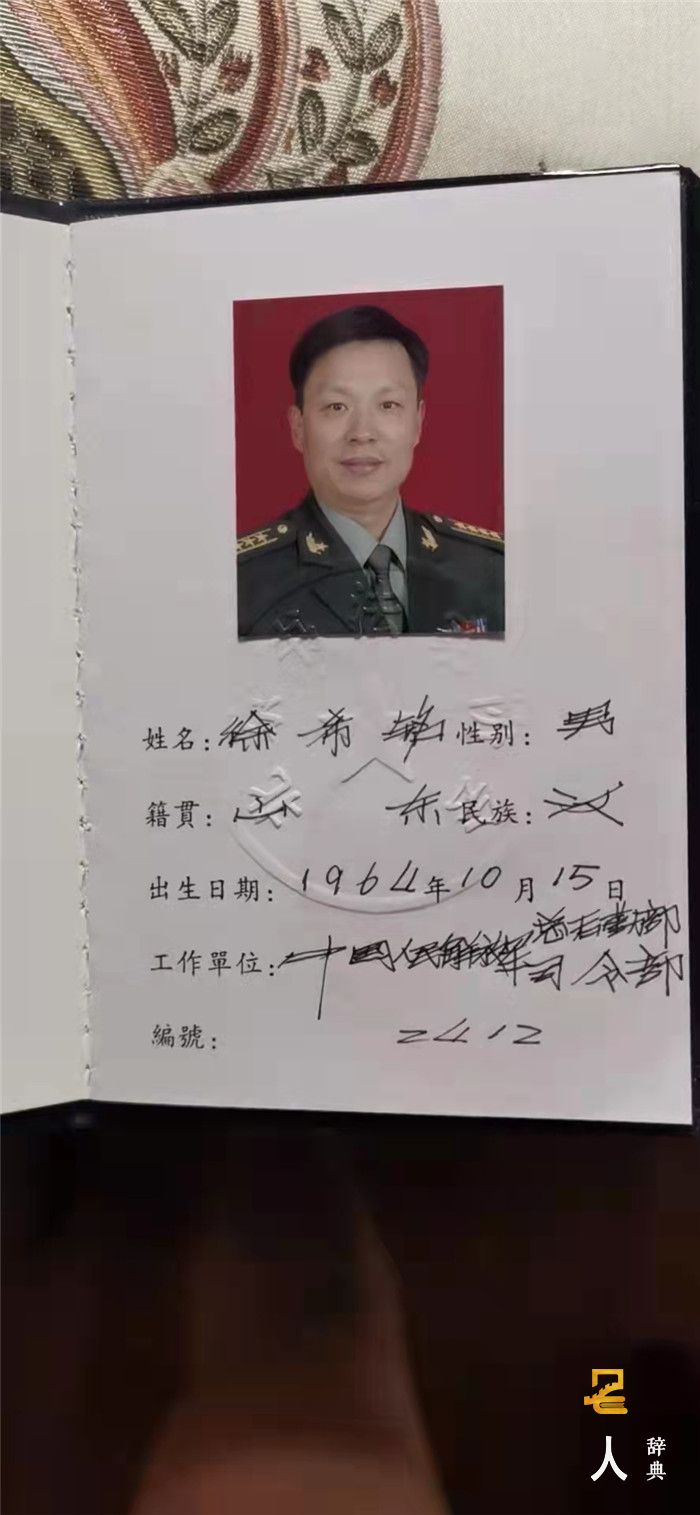 姓名：徐希 性别：男
籍貫：山东 民族：汉
出生日期：1964年10月15日
总后勤部
工作單位：中国人民解放军司令部
編號：2412
人
辞典